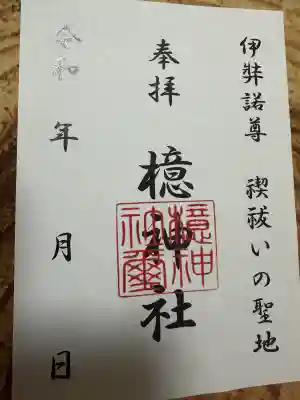 伊弉諾尊 禊祓いの聖地
奉拝
檍神社
檍神
社璽
令和 年 月 日